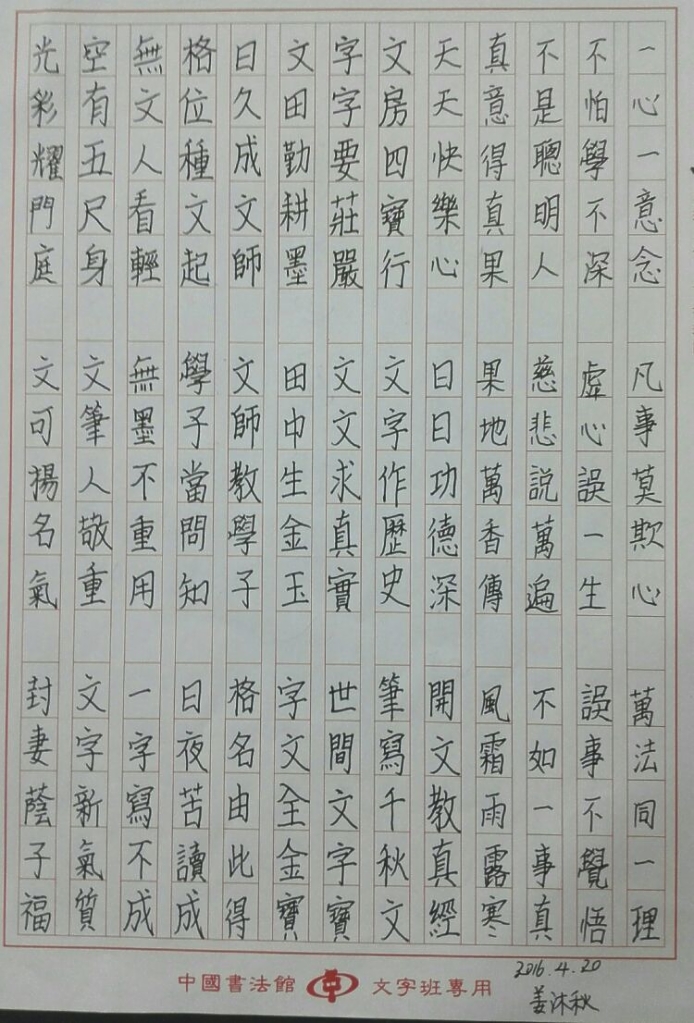 一心一意念 凡事莫欺心 萬法同一理
不怕學不深 虛心誤一生 誤事不覺悟
不是聰明人 慈悲說萬遍 不如一事真
真意得真果 果地萬香傳 風霜雨露寒
天天快樂心 日日功德深 開文教真經
文房四寶行 文字作歷史 筆寫千秋文
字字要莊嚴 文文求真實 世間文字寶
文田勤耕墨 田中生金玉 字文全金寶
日久成文師 文師教學子 格名由此得
格位種文起 學子當問知 日夜苦讀成
無文人看輕 無墨不重用 一字寫不成
空有五尺身 文筆人敬重 文字新氣質
光彩耀門庭 文可揚名氣 封妻蔭子福
2016.4.20
姜沐秋
中國書法館 文字班專用